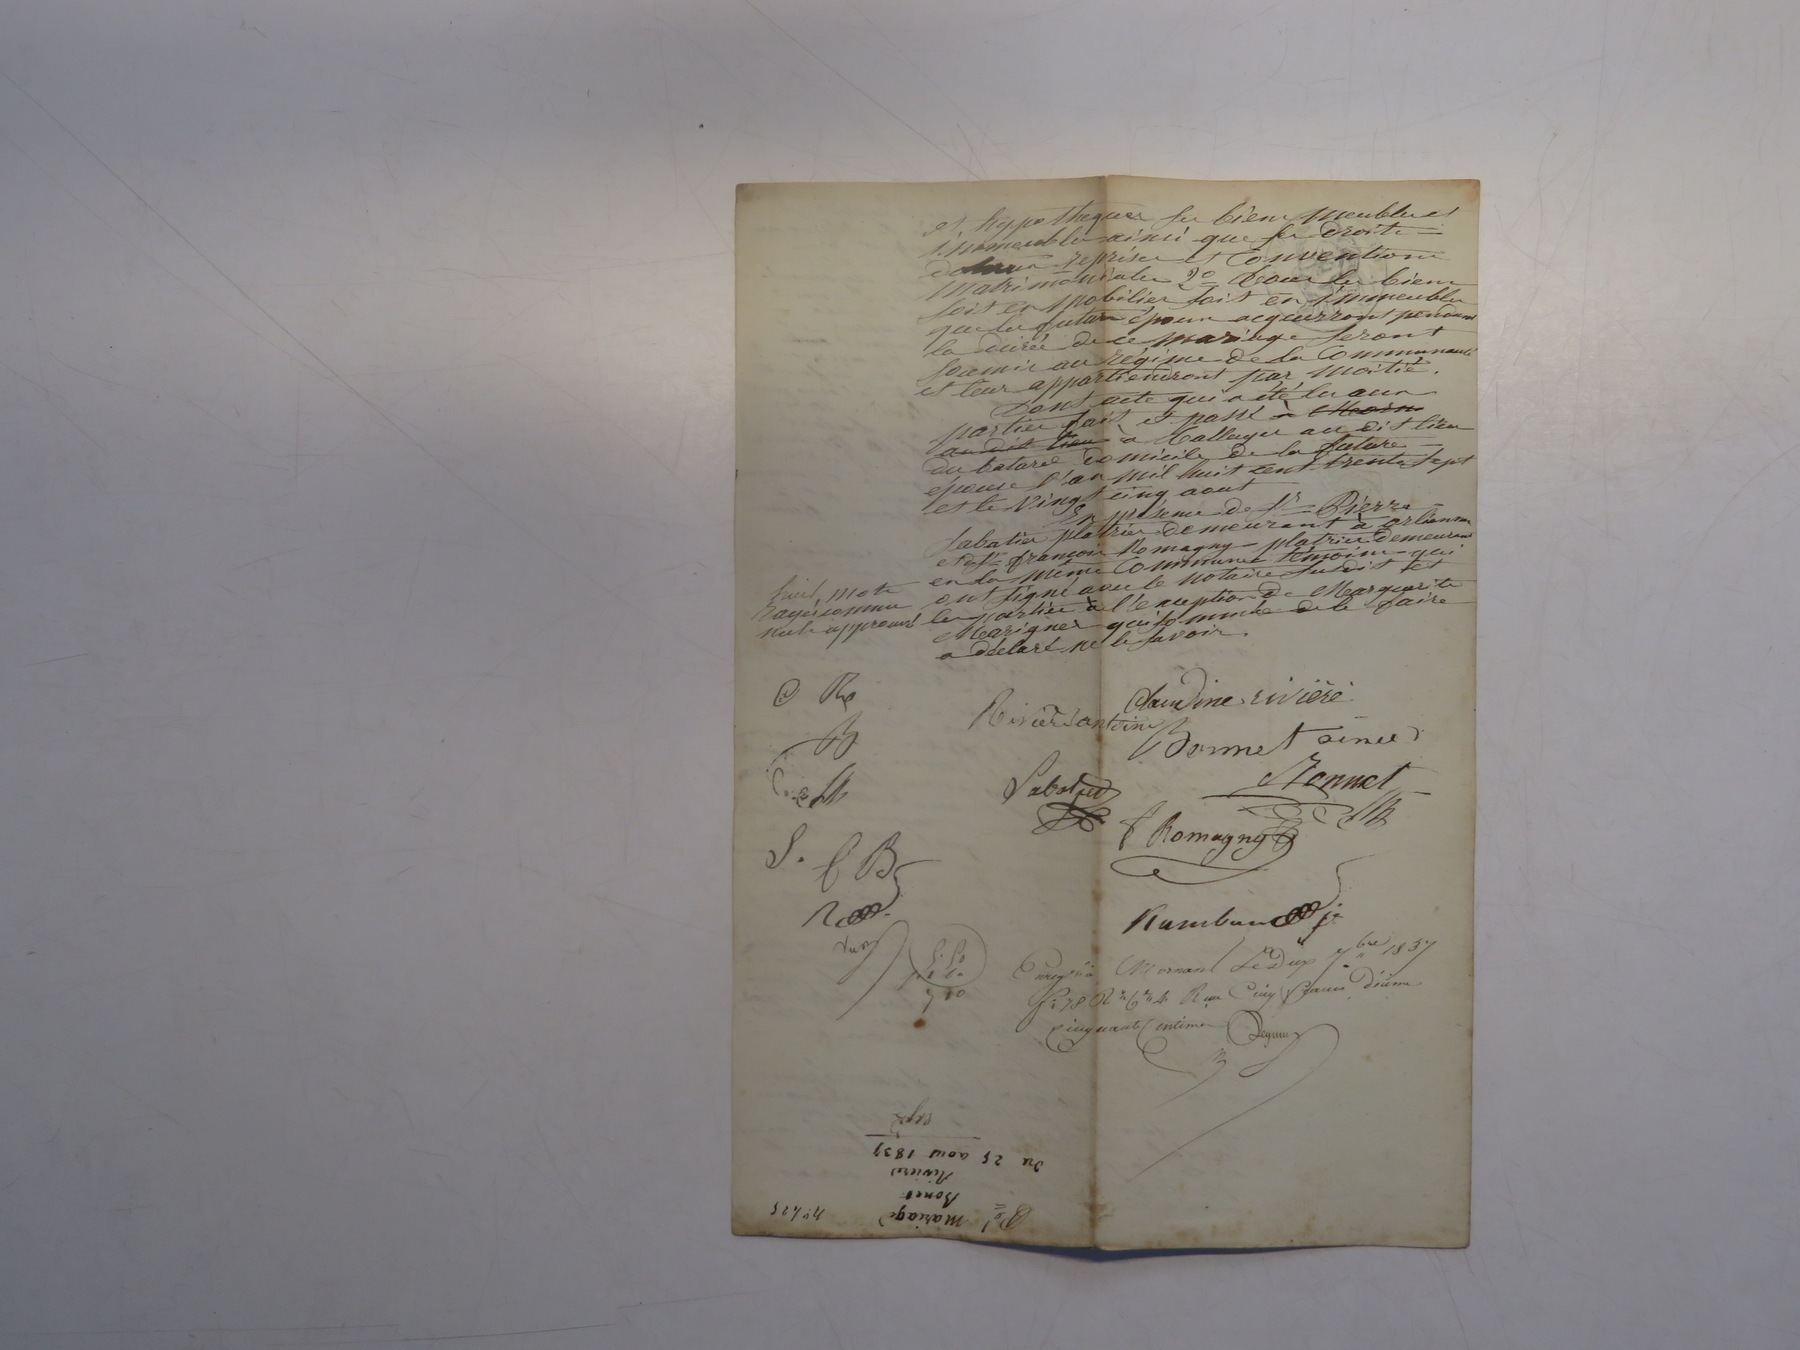 et hypothequer ses biens meubles et
immeubles ainsi que ses droits
reprises et Conventions
Matrimoniales 2o Que les biens
soit en mobilier soit en immeubles
que les futurs époux acquerront pendant
la durée de ce mariage seront
soumis au régime de la Communauté
et leur appartiendront par moitié.
Dont acte qui a été lu aux
parties fait et passé à
au dit lieu à au dit lieu
du domicile de la future
épouse l'an mil huit cent trente sept
et le vingt cinq aout
En présence de Sr Pierre
Sabatier platrier demeurant à
et Sr françois Romagny platrier demeurant
en la même Commune témoins qui
ont signé avec le notaire susdit et
les parties à l'exception de Marguerite
qui sommée de le faire
a déclaré ne le savoir.
huit mots
rayés comme
nuls approuvés
C R
B
claudine rivière
Rivière antoine
Bonnet ainée
Bonnet
Sabatier
f Romagny
S. f B
Enregistré à Mornant Le Dix 7bre 1837
fo 78 Ro Co 4 Reçu Cinq francs, dixième
Cinquante Centimes
No 425
Mariage
Bonet
Rivière
Du 25 aout 1837